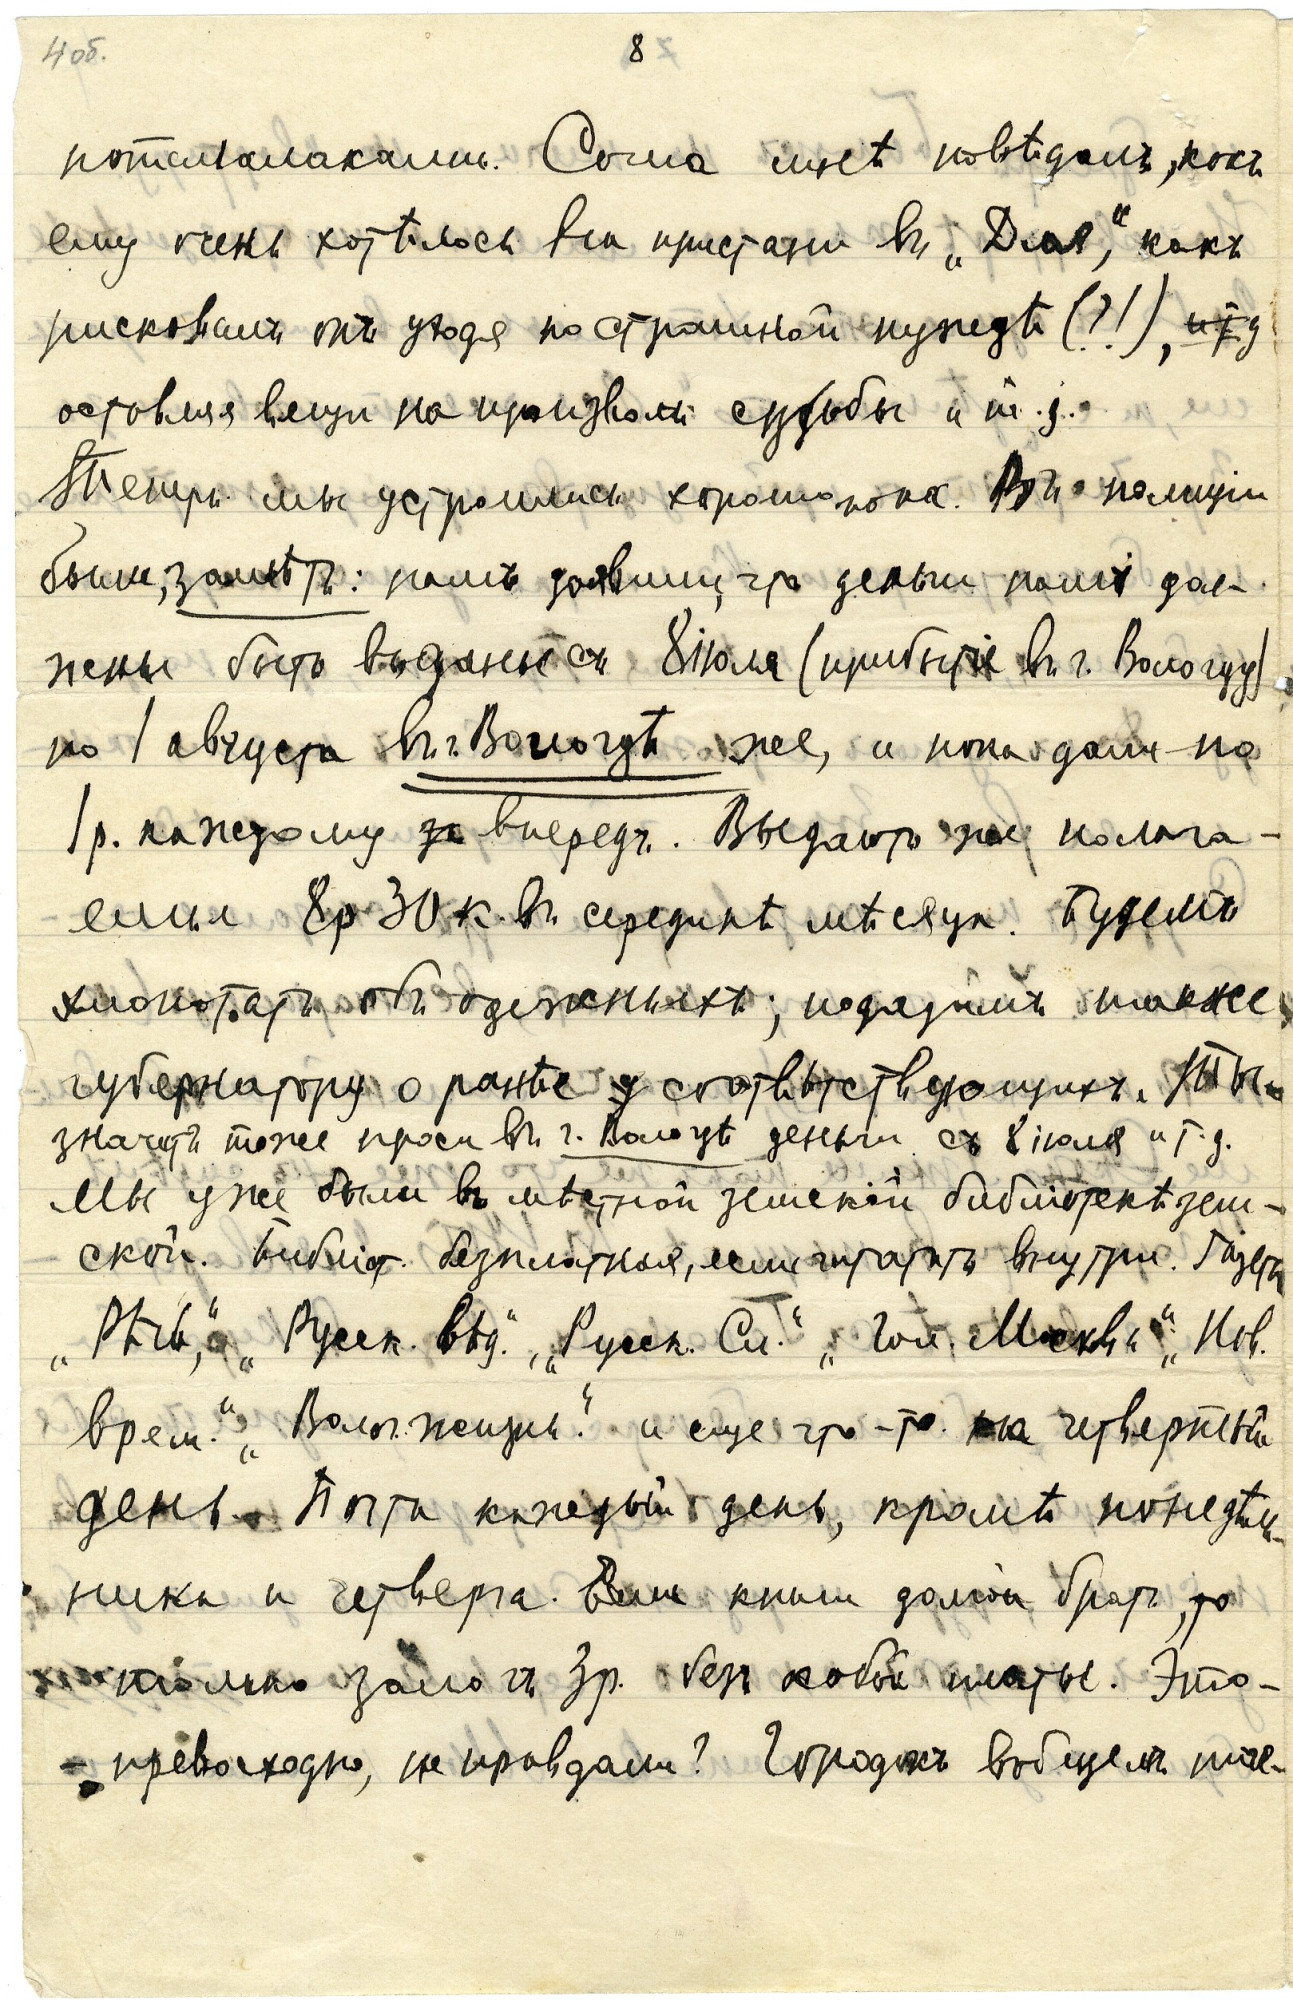 4 об.
8
Сочна мнѣ повѣдалъ, какъ
ему очень хотѣлось на пристани въ „Дмя“, какъ
рисковалъ онъ уходя по страшной нуждѣ (?!), и т д
оставляя вещи на произволъ судьбы и т. д.
Теперь мы устроились хорошо пока. Въ полиціи
были, замѣть: намъ заявили, что деньги намъ дол-
жены быть выданы съ 8 іюля (прибытіе въ г. Вологду)
по 1 августа въ г. Вологдѣ же, и пока дали по
1 р. каждому за впередъ. Выдаютъ же, полага-
емыя 8 р 30 к. въ серединѣ мѣсяца. Будемъ
хлопотать объ одежныхъ; подадимъ также
губернатору о ранѣе у соотвѣтствующихъ. Ты
значитъ тоже проси въ г. Вологдѣ деньги съ 8 іюля и т. д.
Мы уже были въ мѣстной земской библіотекѣ зем-
ской. Библіот. безплатная, если читать внутри. Газеты
„Рѣчь“, „Русск. Вѣд.“, „Русск. Сл.“ „Гол. Москвы“, „Нов.
Врем.“ „Волог. жизнь.“ и еще что-то. на четвертый
день. Почта каждый день, кромѣ понедѣль-
ника и четверга. Если книги домой брать, то
только залогъ 3 р. безъ всякой платы. Это-
- превосходно, не правда ли? Городокъ вобщемъ ниче-